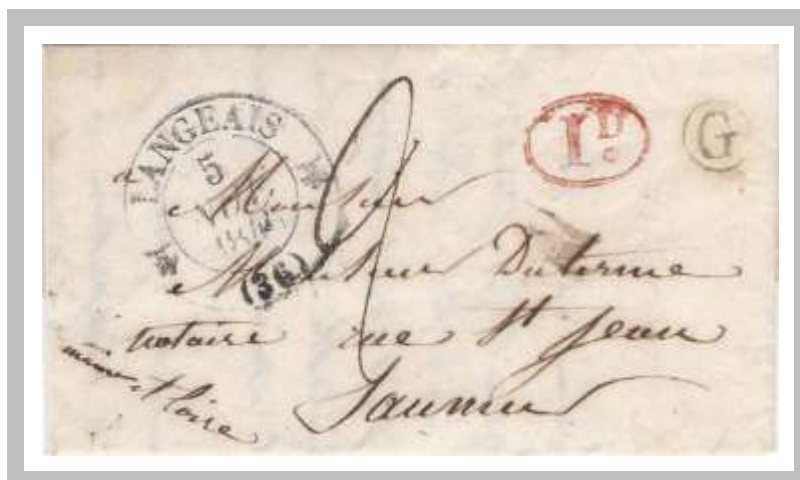 LANGEAIS
5
(36)
1D.
G
2
a
Monsieur
Monsieur Duterme
notaire rue St Jean
Saumur
maine et loire